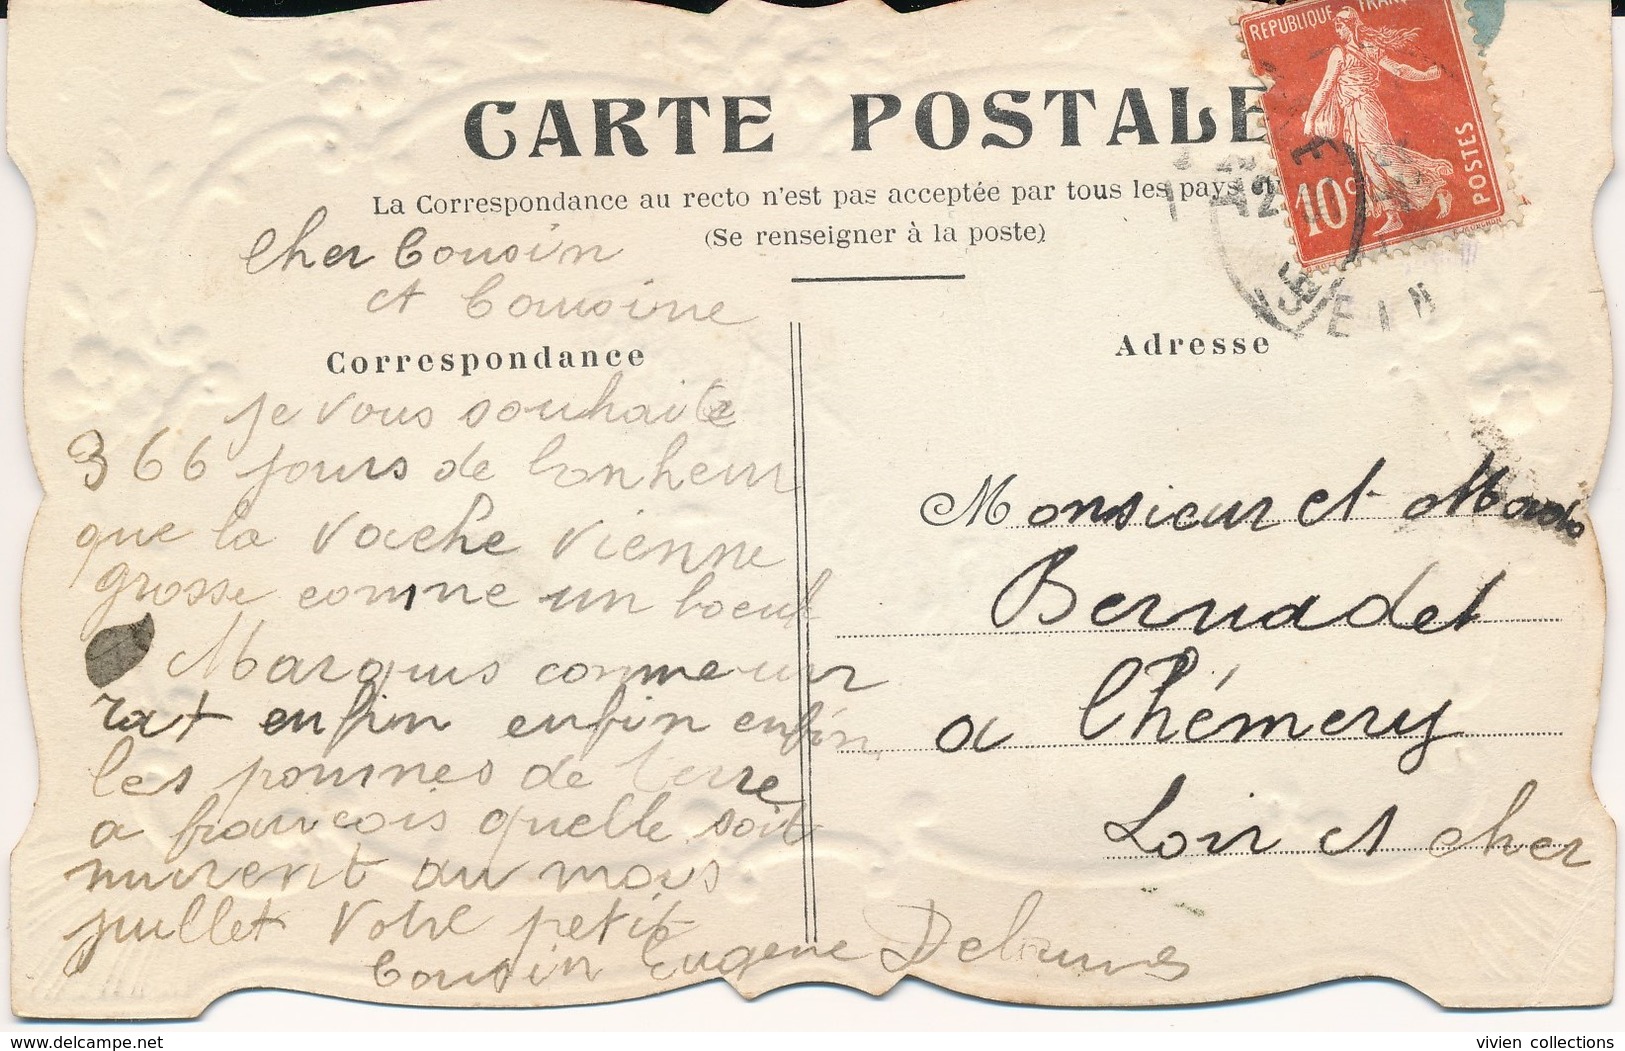 CARTE POSTALE
La Correspondance au recto n'est pas acceptée par tous les pays
(Se renseigner à la poste)
REPUBLIQUE FRANÇ
10c
POSTES
SEIN
Cher Cousin
et Cousine
Correspondance
je vous souhaite
366 jours de bonheur
que la vache vienne
grosse comme un boeuf
Marquis comme un
rat enfin enfin enfin
les pommes de terre
a francois quelle soit
murent au mois
juillet Votre petit
Cousin Eugene
Adresse
Monsieur et Madame
Bernadet
a Chémery
Loir et cher
delcampe.net
vivien collections